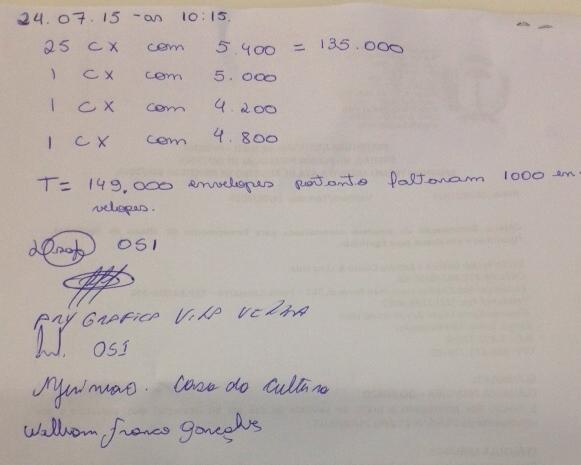 24.07.15 - as 10:15.
25 CX com 5.400 = 135.000
1 CX com 5.000
1 CX com 4.200
1 CX com 4.800
T= 149.000 envelopes portanto faltaram 1000 en-
velopes.
OSI
GRAFICA VILA VELHA
OSI
Casa da Cultura
Welhom Franco Gonçalves